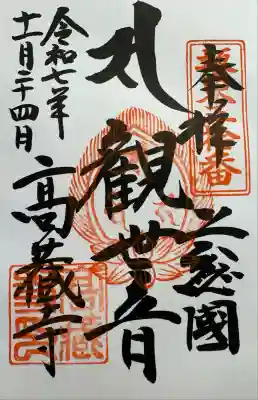 奉拝
上総國
観世音
高蔵寺
令和七年
十一月二十四日